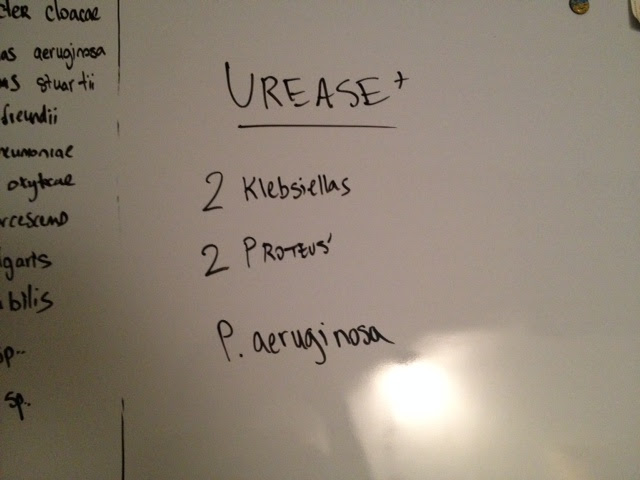 cter cloacae
as aeruginosa
as stuartii
freundii
neumoniae
oxytcae
rcescens
lgaris
bilis
sp..
sp.
UREASE+
2 Klebsiellas
2 PROTEUS'
P. aeruginosa